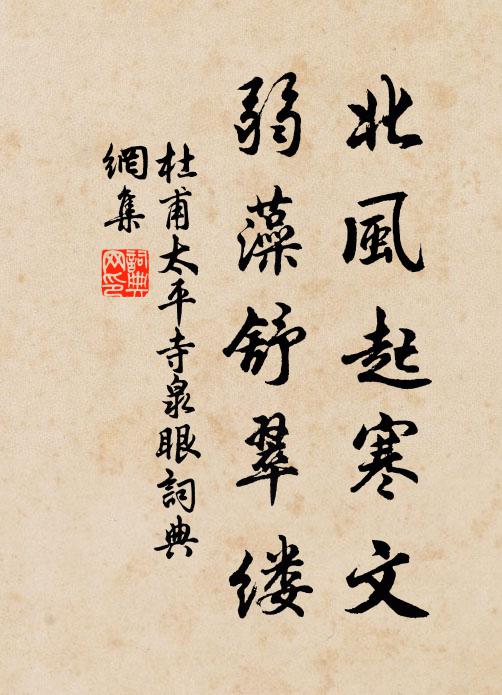 北風起寒文
弱藻舒翠缕
杜甫太平寺泉眼詞典
網集
詞典
网印